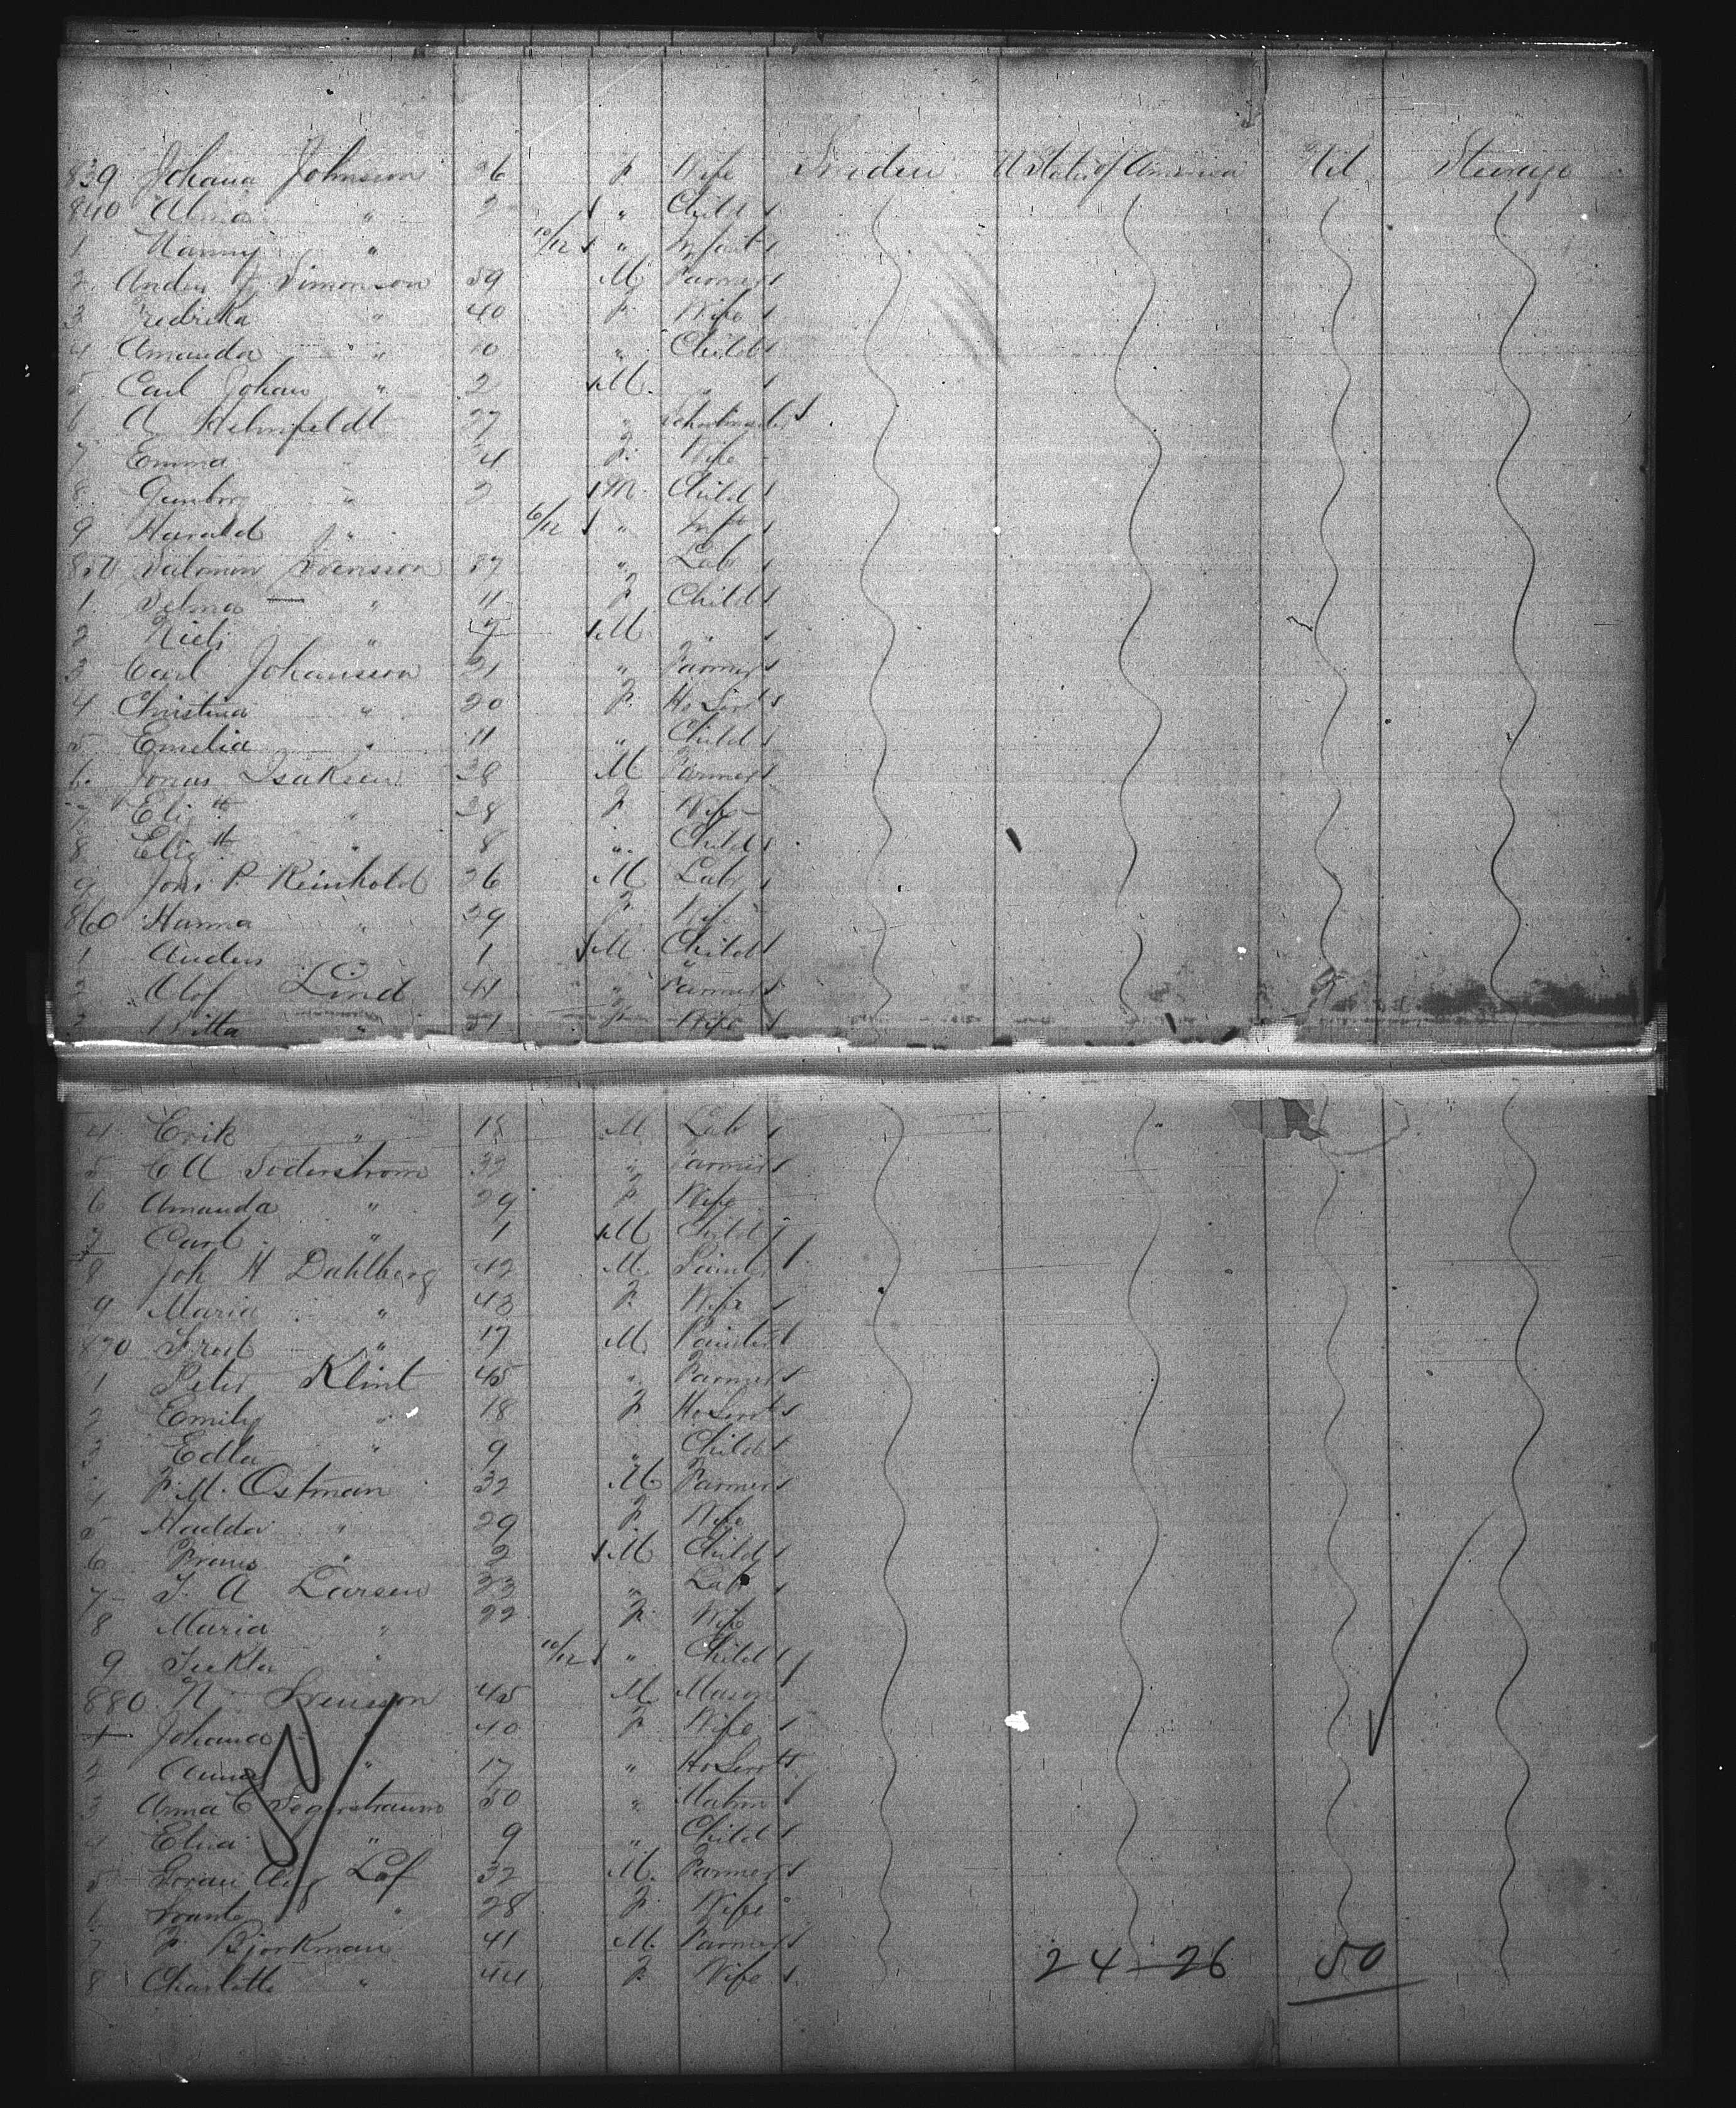 839 Johana Johnson 26 F Wife Sweden U States of America Nil Steerage
840 Alma " 2 " Child
1 Nanny " 10/12 " Infant
2 Anders J Simonson 59 M Farmer
3 Fredrika " 40 F Wife
4 Amanda " 10 " Child
5 Carl Johan " 2 M "
6 A Helmfeldt 27 " Schoolmaster
7 Emma " 24 F Wife
8 Gunborg " 2 M Child
9 Harald " 6/12 " Inft
850 Salomon Svensson 37 " Lab
1 Selma " 11 F Child
2 Niels " 7 M "
3 Carl Johansson 21 " Farmer
4 Christina " 20 F Ho Servt
5 Emelia " 11 " Child
6 Jonas Isaksen 38 M Farmer
7 Eliz th " 38 F Wife
8 Eliz th " 8 " Child
9 Jons P. Reinhold 26 M Lab
860 Hanna " 29 F Wife
1 Anders 1 M Child
2 Olof Lind 41 " Farmer
3 Britta " 51 F Wife
4 Erik " 18 M Lab
5 C A Soderstrom 32 " Farmer
6 Amanda " 29 F Wife
7 Carl " 1 M Child
8 Joh H Dahlberg 42 M Painter
9 Maria " 43 F Wife
870 Fred " 17 M Painter
1 Peter Klint 45 " Farmer
2 Emily " 18 F Ho Servt
3 Edla " 9 " Child
4 P. M. Ostman 32 M Farmer
5 Hadda " 29 F Wife
6 Frans " 2 M Child
7 J. A Larsen 23 " Lab
8 Maria " 22 F Wife
9 Teckla " 10/12 " Child
880 N Svenson 45 M Mason
1 Johana 40 F Wife
2 Anna " 17 " Ho Servt
3 Anna C Segerstraum 50 " Matron
4 Elna " 9 " Child
5 Aug Lof 32 M Farmer
6 " 28 F Wife
7 F Bjorkman 41 M Farmer
8 Charlotte " 44 F Wife
24 - 26 50